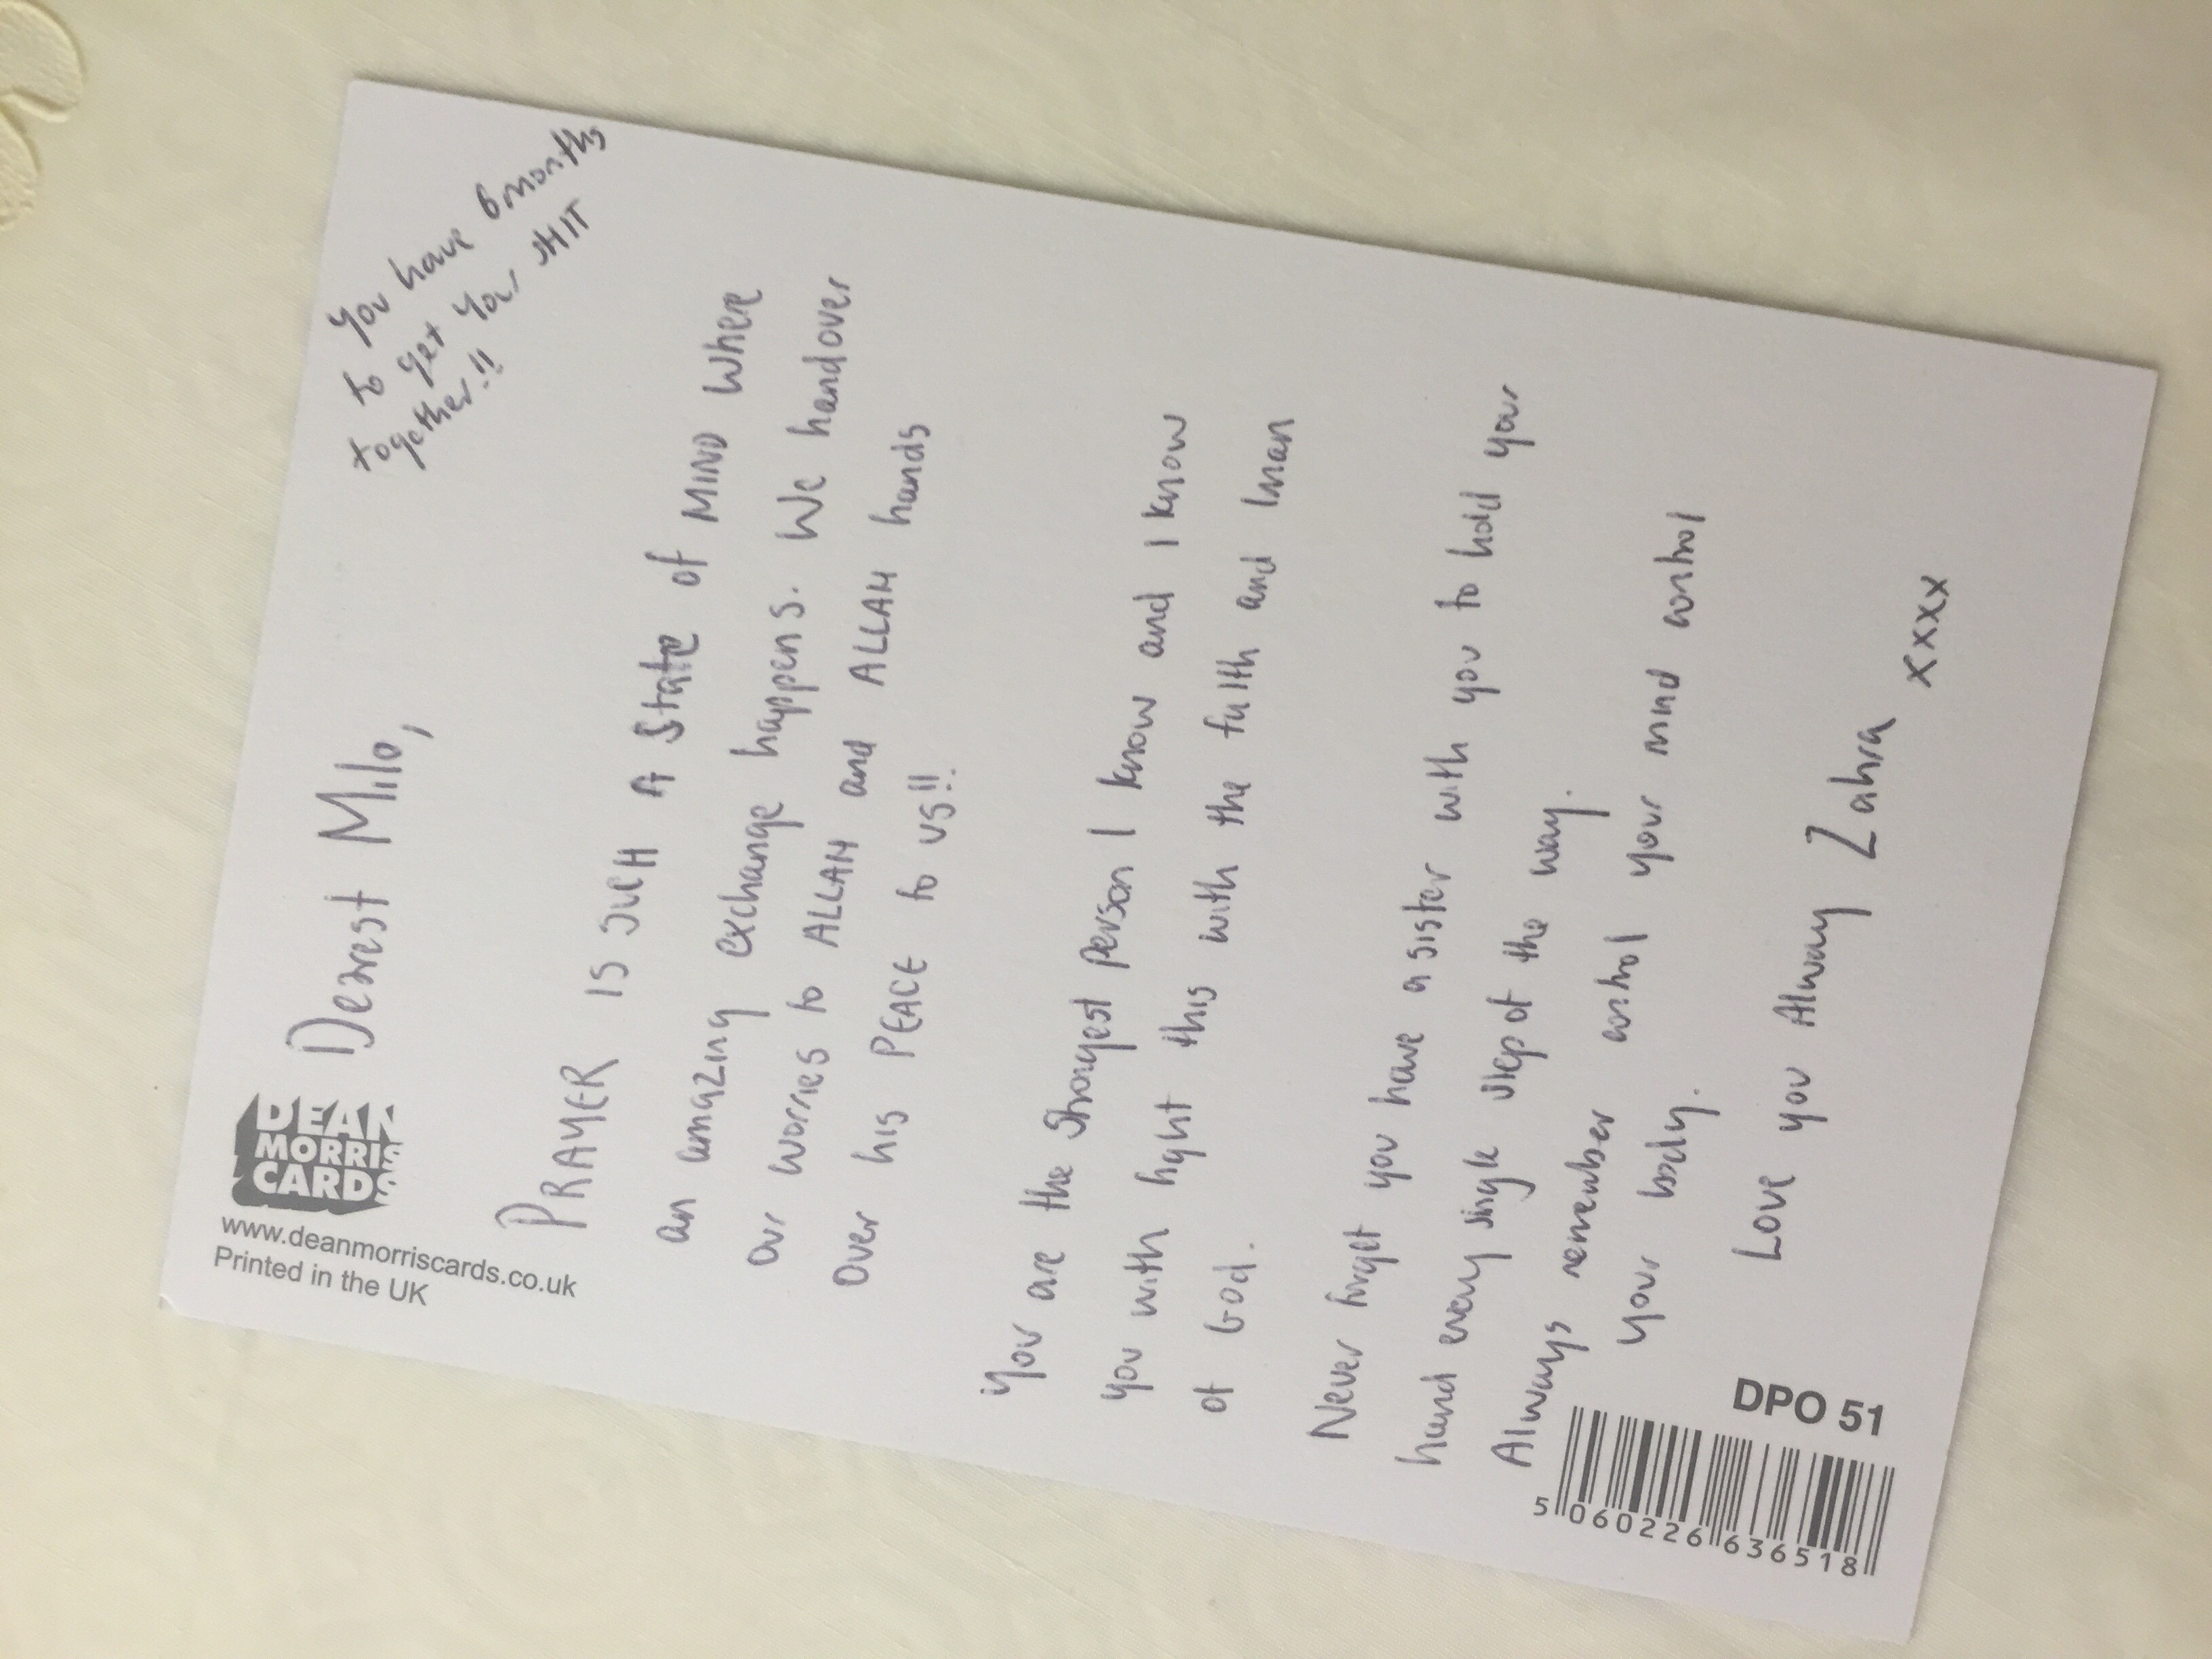 DEAN
MORRIS
CARDS
www.deanmorriscards.co.uk
Printed in the UK
Dearest Milo,
You have 6 months
to get your SHIT
together!!
PRAYER IS SUCH A State of MIND Where
an amazing exchange happens. We handover
our worries to ALLAH and ALLAH hands
over his PEACE to us!!.
You are the Strongest person I know and I know
you with fight this with the faith and Iman
of God.
Never forget you have a sister with you to hold your
hand every single step of the way.
Always remember control your mind control
your body.
Love you Alway Zahra
xxxx
DPO 51
5 060226 636518